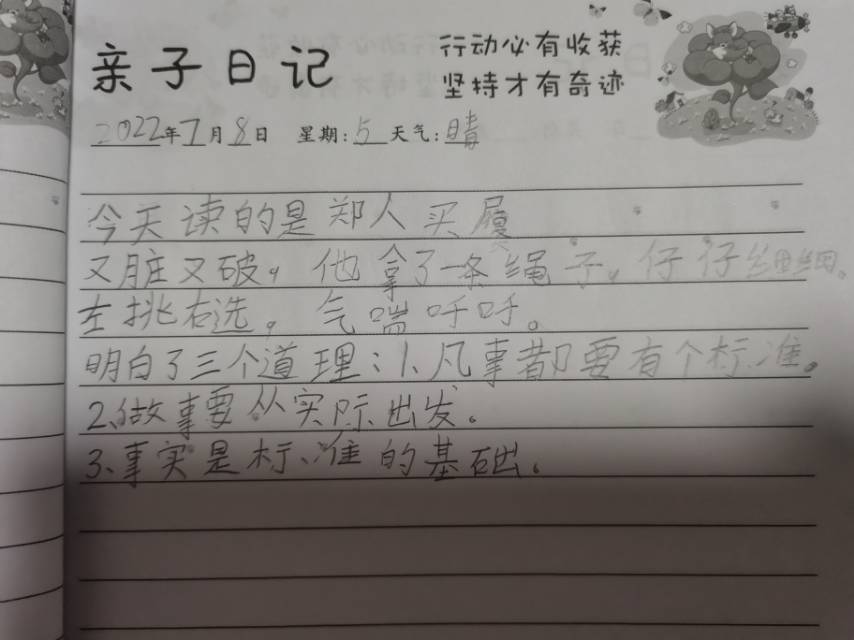 亲子日记
行动必有收获
坚持才有奇迹
2022年7月8日 星期:5 天气:晴
今天读的是郑人买履
又脏又破，他拿了一条绳子。仔仔细细。
左挑右选，气喘吁吁。
明白了三个道理：1、凡事都要有个标准。
2、做事要从实际出发。
3、事实是标准的基础。